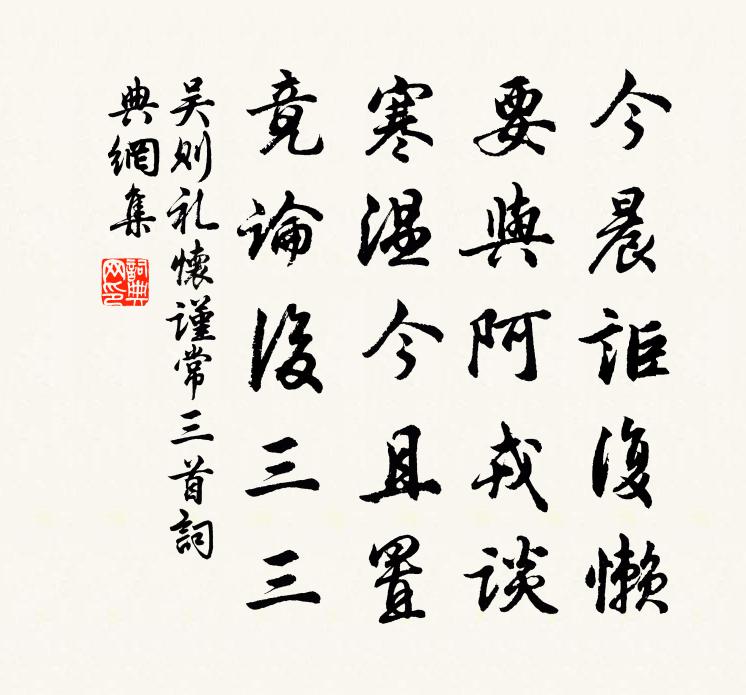 今晨詎復懶
要與阿戎談
寒温今且置
竟論後三三
吴则礼懷謹常三首詞
典網集
詞典网印